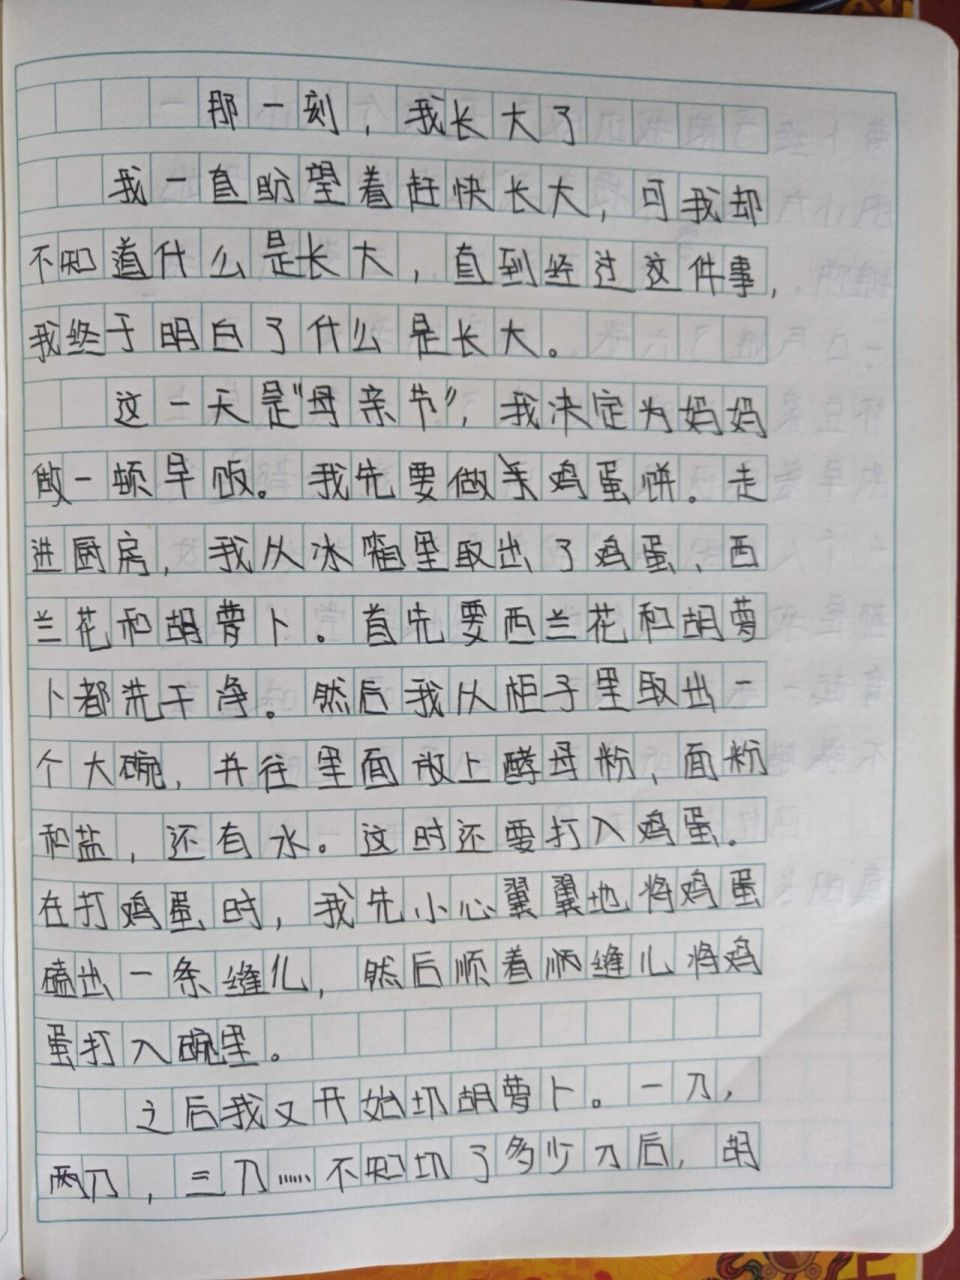 那一刻，我长大了
我一直盼望着赶快长大，可我却
不知道什么是长大，直到经过这件事，
我终于明白了什么是长大。
这一天是“母亲节”，我决定为妈妈
做一顿早饭。我先要做鸡蛋饼。走
进厨房，我从冰箱里取出了鸡蛋、西
兰花和胡萝卜。首先要西兰花和胡萝
卜都洗干净。然后我从柜子里取出一
个大碗，并往里面放上酵母粉、面粉
和盐，还有水。这时还要打入鸡蛋。
在打鸡蛋时，我先小心翼翼地将鸡蛋
磕出一条缝儿，然后顺着缝儿将鸡
蛋打入碗里。
之后我又开始切胡萝卜。一刀，
两刀，三刀……不知切了多少刀后，胡